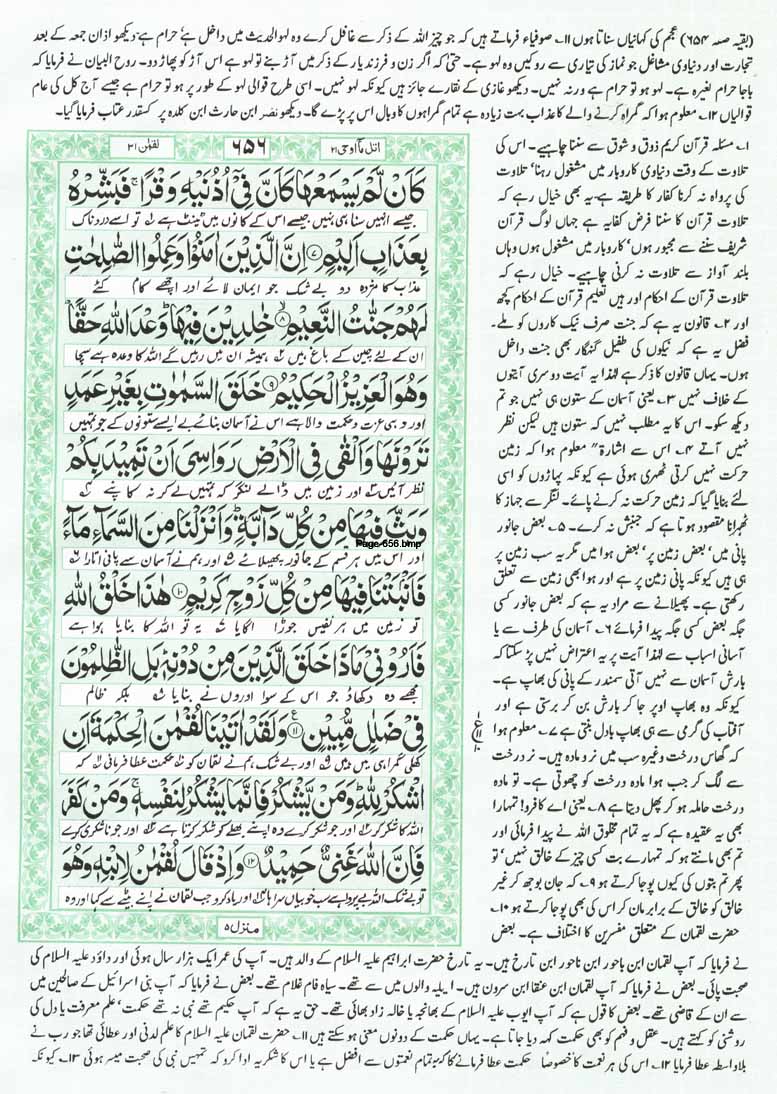 (بقیہ صفحہ ۶۵۴) عجم کی کہانیاں سناتا ہوں ۱۱۔ صوفیاء فرماتے ہیں کہ جو چیز اللہ کے ذکر سے غافل کرے وہ لہو الحدیث میں داخل ہے حرام ہے۔ دیکھو اذان جمعہ کے بعد
تجارت اور دنیاوی مشاغل جو نماز کی تیاری سے روکیں وہ لہو ہے۔ حتیٰ کہ اگر زن و فرزند یار کے ذکر میں آڑ بنے تو لہو ہے اس آڑ کو پھاڑ دو۔ روح البیان نے فرمایا کہ
باجا حرام لغیرہ ہے۔ لہو ہو تو حرام ہے ورنہ نہیں۔ دیکھو غازی کے نقارے جائز ہیں کیونکہ لہو نہیں۔ اسی طرح قوالی لہو کے طور پر ہو تو حرام ہے جیسے آج کل کی عام
قوالیاں ۱۲۔ معلوم ہوا کہ گمراہ کرنے والے کا عذاب بہت زیادہ ہے تمام گمراہوں کا وبال اس پر پڑے گا۔ دیکھو نضر ابن حارث ابن کلدہ پر کسقدر عتاب فرمایا گیا۔
لقمٰن ۳۱
۶۵۶
اتل ما اوحی ۲۱
كَاَنْ لَّمْ يَسْمَعْهَا كَاَنَّ فِيْۤ اُذُنَيْهِ وَقْرًا ۚ فَبَشِّرْهُ
جیسے انہیں سنا ہی نہیں جیسے اس کے کانوں میں ٹینٹ ہے تو اسے دردناک
بِعَذَابٍ اَلِيْمٍ ۷ اِنَّ الَّذِيْنَ اٰمَنُوْا وَعَمِلُوا الصّٰلِحٰتِ
عذاب کا مژدہ دو بے شک جو ایمان لائے اور اچھے کام کئے
لَهُمْ جَنّٰتُ النَّعِيْمِ ۸ خٰلِدِيْنَ فِيْهَا ؕ وَعْدَ اللّٰهِ حَقًّا ؕ
ان کے لئے چین کے باغ ہیں ہمیشہ ان میں رہیں گے اللہ کا وعدہ ہے سچا
وَهُوَ الْعَزِيْزُ الْحَكِيْمُ ۹ خَلَقَ السَّمٰوٰتِ بِغَيْرِ عَمَدٍ
اور وہی عزت و حکمت والا ہے اس نے آسمان بنائے بے ایسے ستونوں کے جو تمہیں
تَرَوْنَهَا وَاَلْقٰى فِي الْاَرْضِ رَوَاسِيَ اَنْ تَمِيْدَ بِكُمْ
نظر آئیں اور زمین میں ڈالے لنگر کہ تمہیں لے کر نہ کانپے
وَبَثَّ فِيْهَا مِنْ كُلِّ دَآبَّةٍ ؕ وَاَنْزَلْنَا مِنَ السَّمَآءِ مَآءً
اور اس میں ہر قسم کے جانور پھیلائے اور ہم نے آسمان سے پانی اتارا
Page-656.bmp
فَاَنْۢبَتْنَا فِيْهَا مِنْ كُلِّ زَوْجٍ كَرِيْمٍ ۱۰ هٰذَا خَلْقُ اللّٰهِ
تو زمین میں ہر نفیس جوڑا اگایا یہ تو اللہ کا بنایا ہوا ہے
فَاَرُوْنِيْ مَاذَا خَلَقَ الَّذِيْنَ مِنْ دُوْنِهٖ ؕ بَلِ الظّٰلِمُوْنَ
مجھے وہ دکھاؤ جو اس کے سوا اوروں نے بنایا بلکہ ظالم
فِيْ ضَلٰلٍ مُّبِيْنٍ ۱۱ وَلَقَدْ اٰتَيْنَا لُقْمٰنَ الْحِكْمَةَ اَنِ
کھلی گمراہی میں ہیں اور بے شک ہم نے لقمان کو حکمت عطا فرمائی کہ
اشْكُرْ لِلّٰهِ ؕ وَمَنْ يَّشْكُرْ فَاِنَّمَا يَشْكُرُ لِنَفْسِهٖ ۚ وَمَنْ كَفَرَ
اللہ کا شکر کر اور جو شکر کرے وہ اپنے بھلے کو شکر کرتا ہے اور جو ناشکری کرے
فَاِنَّ اللّٰهَ غَنِيٌّ حَمِيْدٌ ۱۲ وَاِذْ قَالَ لُقْمٰنُ لِابْنِهٖ وَهُوَ
تو بے شک اللہ بے پرواہ ہے سب خوبیاں سراہا اور یاد کرو جب لقمان نے اپنے بیٹے سے کہا اور وہ
منزل ۵
۱۔ مسئلہ قرآن کریم ذوق و شوق سے سننا چاہیے۔ اس کی
تلاوت کے وقت دنیاوی کاروبار میں مشغول رہنا تلاوت
کی پرواہ نہ کرنا کفار کا طریقہ ہے۔ یہ بھی خیال رہے کہ
تلاوت قرآن کا سننا فرض کفایہ ہے جہاں لوگ قرآن
شریف سننے سے مجبور ہوں، کاروبار میں مشغول ہوں وہاں
بلند آواز سے تلاوت نہ کرنی چاہیے۔ خیال رہے کہ
تلاوت قرآن کے احکام اور ہیں تعلیم قرآن کے احکام کچھ
اور ۲۔ قانون یہ ہے کہ جنت صرف نیک کاروں کو ملے۔
فضل یہ ہے کہ نیکوں کی طفیل گنہگار بھی جنت میں داخل
ہوں۔ یہاں قانون کا ذکر ہے لہٰذا یہ آیت دوسری آیتوں
کے خلاف نہیں ۳۔ یعنی آسمان کے ستون ہی نہیں جو تم
دیکھ سکو۔ اس کا یہ مطلب نہیں کہ ستون ہیں لیکن نظر
نہیں آتے ۴۔ اس سے اشارۃً معلوم ہوا کہ زمین
حرکت نہیں کرتی ٹھہری ہوئی ہے کیونکہ پہاڑوں کو اسی
لئے بنایا گیا کہ زمین حرکت نہ کرنے پائے۔ لنگر سے جہاز کا
ٹھہرانا مقصود ہوتا ہے کہ جنبش نہ کرے۔ ۵۔ بعض جانور
پانی میں، بعض زمین پر، بعض ہوا میں مگر یہ سب زمین پر
ہی ہیں کیونکہ پانی زمین پر ہے اور ہوا بھی زمین سے تعلق
رکھتی ہے۔ پھیلانے سے مراد یہ ہے کہ بعض جانور کسی
جگہ بعض کسی جگہ پیدا فرمائے ۶۔ آسمان کی طرف سے یا
آسمانی اسباب سے لہٰذا آیت پر یہ اعتراض نہیں پڑ سکتا کہ
بارش آسمان سے نہیں آتی سمندر کے پانی کی بھاپ ہے۔
کیونکہ وہ بھاپ اوپر جا کر بارش بن کر برستی ہے اور
آفتاب کی گرمی سے ہی بھاپ بادل بنتی ہے ۷۔ معلوم ہوا
کہ گھاس درخت وغیرہ سب میں نر و مادہ ہیں۔ نر درخت
سے لگ کر جب ہوا مادہ درخت کو چھوتی ہے۔ تو مادہ
درخت حاملہ ہو کر پھل دیتا ہے ۸۔ یعنی اے کافرو! تمہارا
بھی یہ عقیدہ ہے کہ یہ تمام مخلوق اللہ نے پیدا فرمائی اور
تم بھی مانتے ہو کہ تمہارے بت کسی چیز کے خالق نہیں، تو
پھر تم بتوں کی کیوں پوجا کرتے ہو ۹۔ کہ جان بوجھ کر غیر
خالق کو خالق کے برابر مان کر اس کی بھی پوجا کرتے ہو ۱۰۔
حضرت لقمان کے متعلق مفسرین کا اختلاف ہے۔ بعض
نے فرمایا کہ آپ لقمان ابن باحور ابن ناحور ابن تارخ ہیں۔ یہ تارخ حضرت ابراہیم علیہ السلام کے والد ہیں۔ آپ کی عمر ایک ہزار سال ہوئی اور داؤد علیہ السلام کی
صحبت پائی۔ بعض نے فرمایا کہ آپ لقمان ابن عنقا ابن سرون ہیں۔ ایلہ والوں میں سے تھے۔ سیاہ فام غلام تھے۔ بعض نے فرمایا کہ آپ بنی اسرائیل کے صالحین میں
سے ان کے قاضی تھے۔ بعض کا قول ہے کہ آپ ایوب علیہ السلام کے بھانجہ یا خالہ زاد بھائی تھے۔ حق یہ ہے کہ آپ حکیم تھے نبی نہ تھے حکمت، علم معرفت یا دل کی
روشنی کو کہتے ہیں۔ عقل و فہم کو بھی حکمت کہہ دیا جاتا ہے۔ یہاں حکمت کے دونوں معنی ہو سکتے ہیں ۱۱۔ حضرت لقمان علیہ السلام کا علم لدنی اور عطائی تھا جو رب نے
بلاواسطہ عطا فرمایا ۱۲۔ اس کی ہر نعمت کا خصوصاً حکمت عطا فرمانے کا کہ یہ تمام نعمتوں سے افضل ہے یا اس کا شکریہ ادا کرو کہ تمہیں نبی کی صحبت میسر ہوئی ۱۳۔ کیونکہ